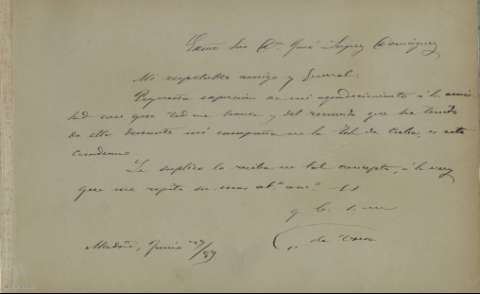 Exmo Sor Dn José Lopez Dominguez
Mi respetable amigo y General:
Pequeña expresion de mi agradecimiento á la amis
tad con que me honra y del recuerdo que he tenido
de ella durante mi campaña en la Isla de Cuba, es este
cuaderno.
Le suplico lo reciba en tal concepto, á la vez
que me repito su mas
Madrid, Junio 27/89